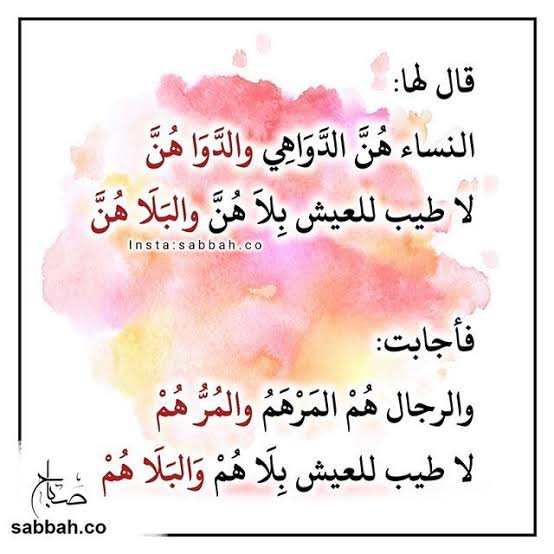 قال لها:
النساء هُنَّ الدَّوَاهِي والدَّوَا هُنَّ
لا طيب للعيش بِلاَ هُنَّ والبَلَا هُنَّ
Insta:sabbah.co
فأجابت:
والرجال هُمْ المَرْهَمُ والمُرُّ هُمْ
لا طيب للعيش بِلَا هُمْ وَالبَلَا هُمْ
صباح
sabbah.co